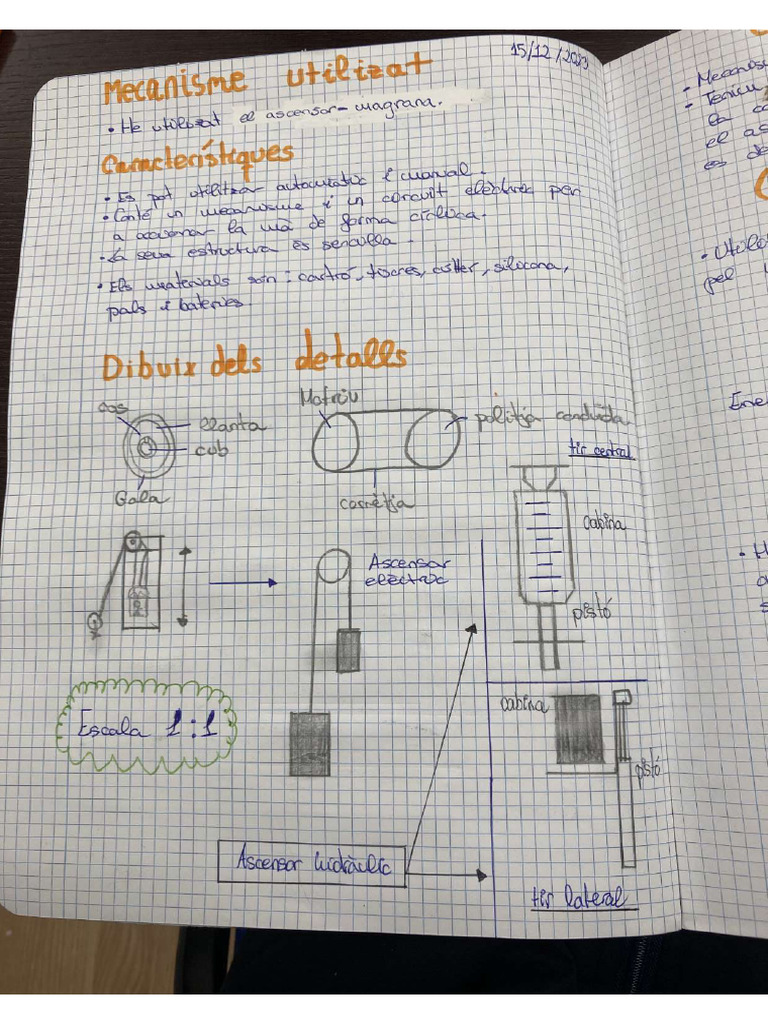 15/12/2023
Mecanisme utilizat
• He utilitzat el ascensor-magrana.
Característiques
• Es pot utilitzar automàtic i manual.
• Conté un mecanisme i un circuit elèctric per
a accionar la mà de forma cíclica.
• La seva estructura és sencilla.
• Els materials són: cartró, tisores, cúter, silicona,
pals i bateries.
Dibuix dels detalls
cos
llanta
cub
Gola
Motriu
politja conduïda
corretja
tir central
cabina
pistó
Ascensor
elèctric
Escala 1:1
cabina
pistó
Ascensor hidràulic
tir lateral
- Mecanis
- Tècnic
la co
el as
es de
• Utili
pel
Ene
• H